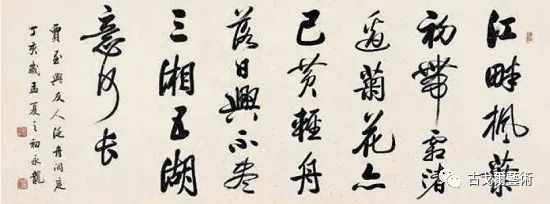 江畔楓葉
初帶霜渚
邊菊花亦
已黃輕舟
落日興不盡
三湘五湖
意何長
賈至與友人泛舟洞庭
丁亥歲孟夏之初永龍
古戈爾藝術